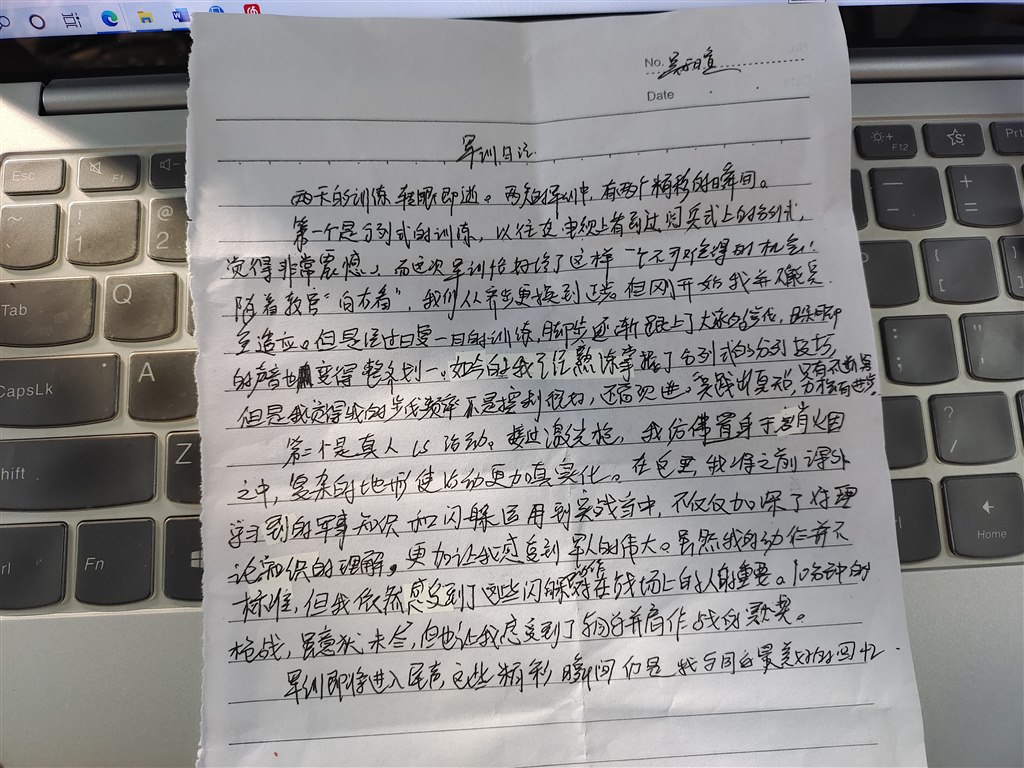 No.
Date
军训日记
两天的训练转眼即逝。两天的军训中,有两个精彩的瞬间。
第一个是分列式的训练,以往在电视上看到过阅兵式上的分列式,
觉得非常震憾,而这次军训恰好给了这样一个不可多得的机会!
随着教官“向右看”,我们从齐步更换到正步。但刚开始我并不能完
全适应。但是经过日复一日的训练,脚步逐渐跟上了大家的
的声音也变得整齐划一。如今的我已经熟练掌握了分列式的分列技巧,
但是我觉得我的步伐频率不是控制很好,还需改进。实践出真知,只有不断参与
分列才有进步。
第二个是真人CS活动。接过激光枪,我仿佛置身于硝烟
之中,复杂的地形使活动更加真实化。在这里,我将之前课外
学习到的军事知识和闪躲运用到实战当中,不仅仅加深了对理
论知识的理解。更加让我感受到军人的伟大。虽然我的动作并不
标准,但我依然感受到了这些闪躲动作对在战场上的人的重要。10分钟的
枪战,虽意犹未尽,但也让我感受到了与同学并肩作战的
军训即将进入尾声,这些精彩瞬间仍是我与同学最美好的回忆.
Esc
F1
F12
Tab
Q
CapsLk
A
Shift
Z
Fn
Home